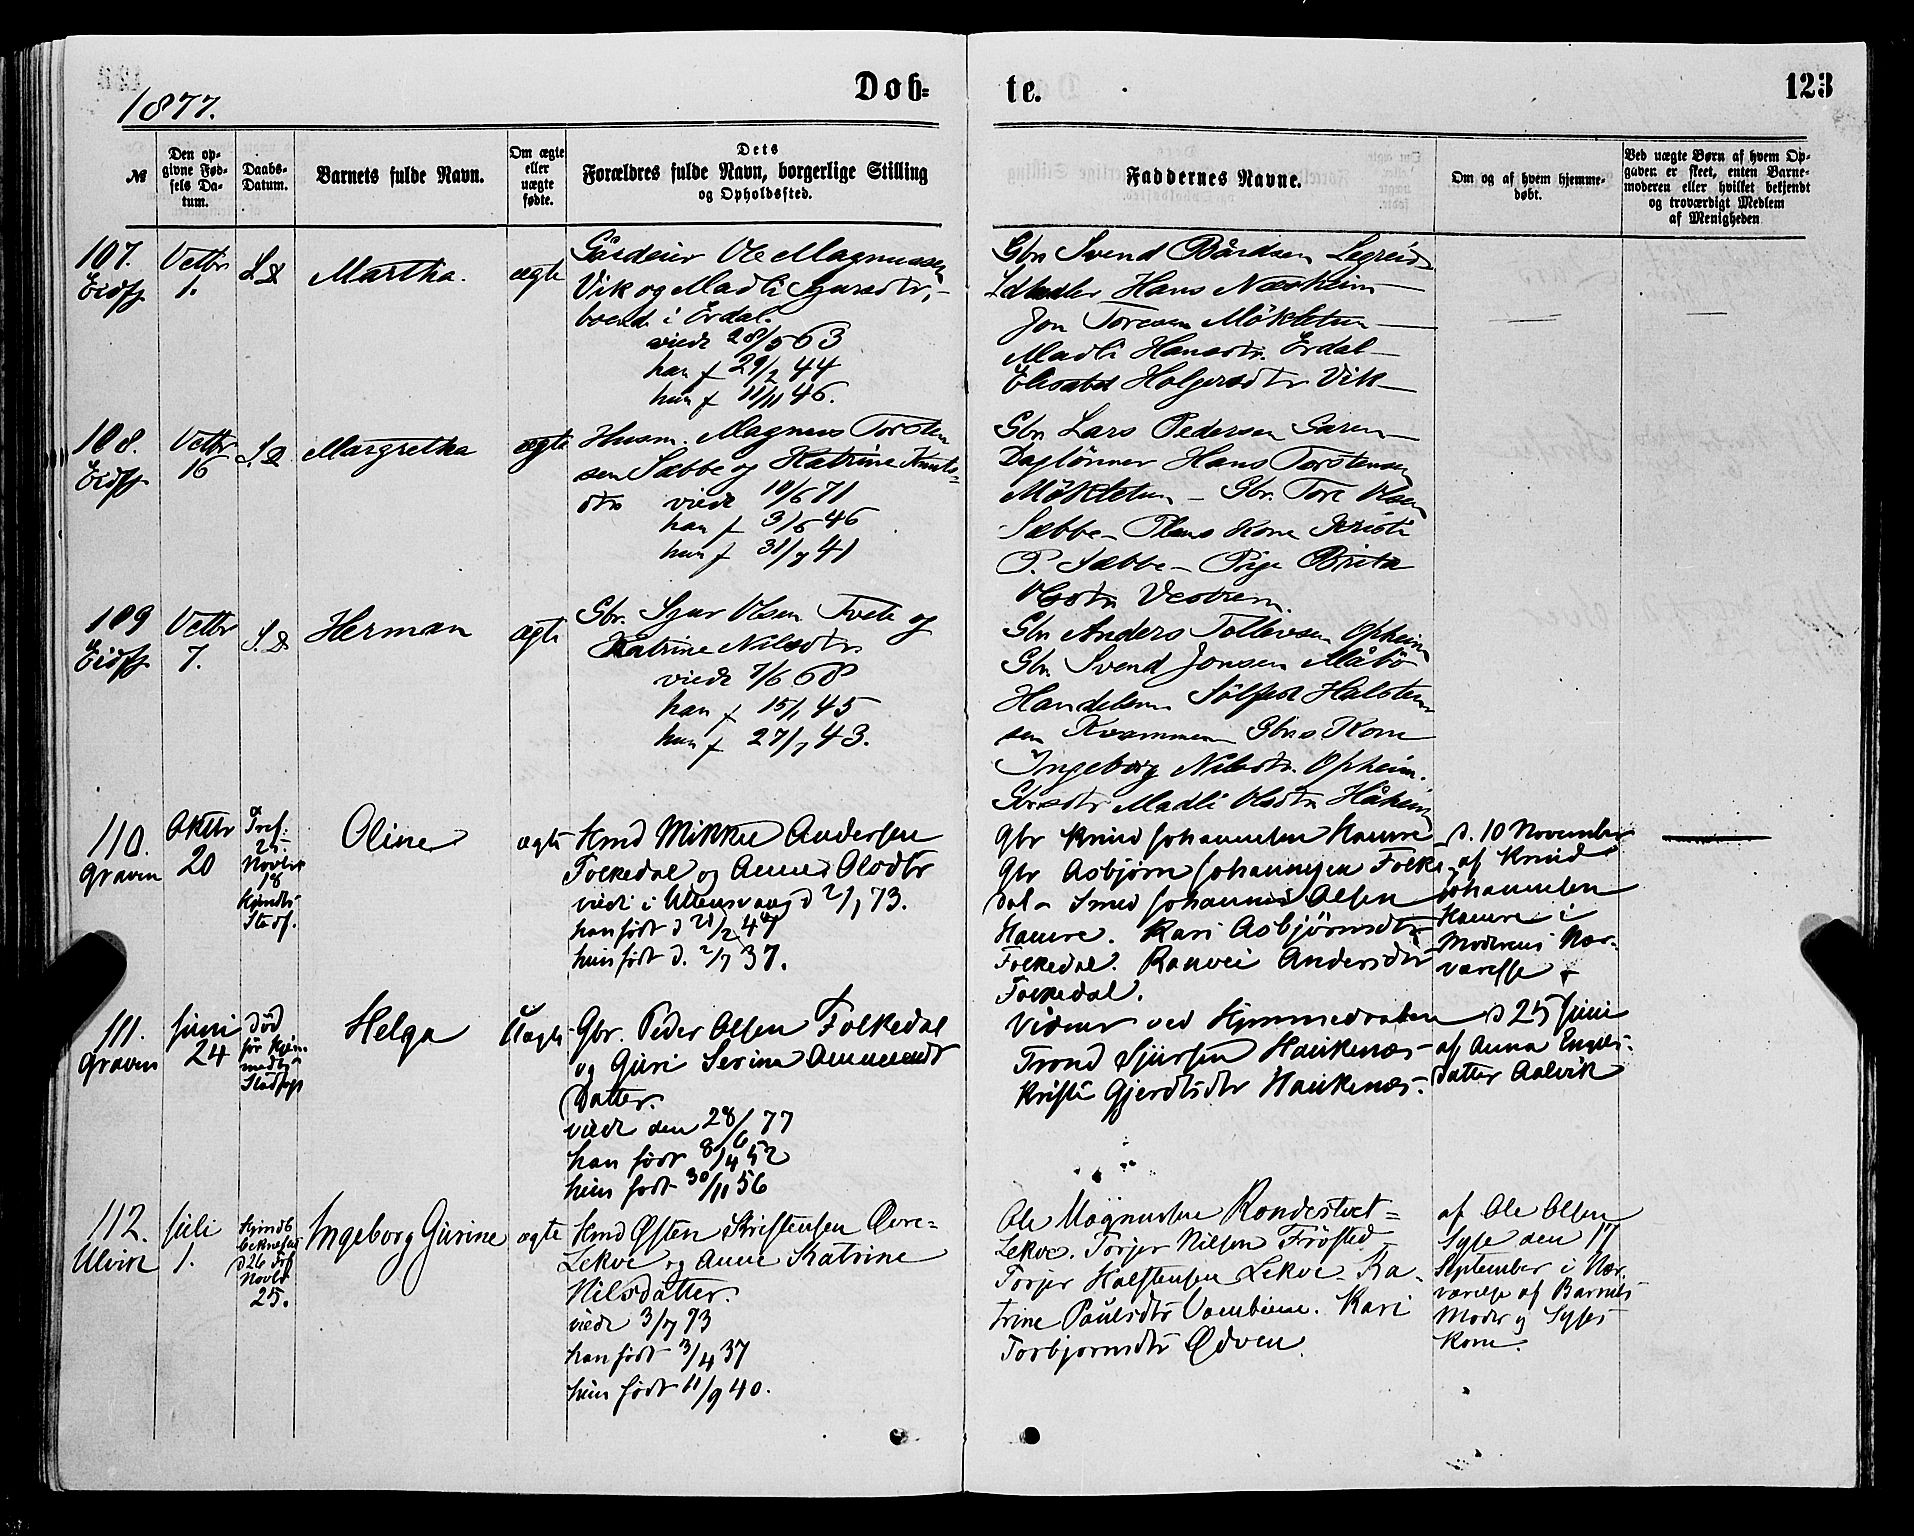 1877.
Døb=
te.
123
№
Den op-
givne Fød-
sels Da-
tum.
Daabs-
Datum.
Barnets fulde Navn.
Om ægte
eller
uægte
fødte.
Dets
Forældres fulde Navn, borgerlige Stilling
og Opholdssted.
Faddernes Navne.
Om og af hvem hjemme-
døbt.
Ved uægte Børn af hvem Op-
gaven er skeet, enten Barne-
moderen eller hvilket bekjendt
og troværdigt Medlem
af Menigheden
107.
Eidfj
1.
S.D
Martha.
ægte
Gårdeier Ole Magnussen
Vik og Madli Sjursdtr,
boende i Erdal.
viede 28/5 63
han f 29/2 44
hun f 11/11 46.
Gbr Svend Bårdsen Legreid
Hans Næsheim
Jon Toresen Mökletun
Madli Hansdtr. Erdal
Elisabet Holgersdtr Vik
108.
Eidfj
16
S.D.
Margretha
ægte
Husm. Magnus Torsten
sen Sæbbe og Katrine Knuts=
dtr viede 10/6 71
han f 3/6 46
hun f 31/7 41
Gbr Lars Pedersen Garen
Daglönner Hans Torstensen
Möktletun – Gbr. Tore Olsen
Sæbbe – Plads Kone Kristi
P. Sæbbe – Pige Brita
Olsdtr Vestrem.
109
Eidfj
7.
S.D
Herman
ægte
Gbr. Sjur Olsen Tveit og
Katrine Nilsdtr
viede 7/6 68
han f 15/1 45
hun f 27/7 43.
Gbr Anders Tollevsen Opheim
Gbr. Svend Jonsen Måbö
Handelsm Sölfest Halsten
sen Kvammen Gbrs Kone
Ingeborg Nilsdtr. Opheim.
Madli Olsdtr Håheim
110.
Graven
Oktbr
20
Novbr
18
Stadf.
Oline
ægte
Hmd Mikkel Andersen
Folkedal og Anna Olsdtr
viede i Ullensvang d 2/1 73.
han født d 21/2 44
hun født d. 2/7 37.
Gbr Knud Johannesen Hamre
Gbr Asbjørn Johannesen Folke
dal – Smed Johannes Olsen
Hamre. Kari Asbjörnsdtr
Folkedal. Ranvei Andersdtr
Folkedal.
d. 10 November
af Knud
Johannesen
Hamre i
Moderens Nær-
værelse
111.
Graven
Juni
24
død
før
Helga
Uægte
Gbr. Peder Olsen Folkedal
og Guri Serina Ammunds
Datter.
viede den 28/6 77
han født 8/4 52
hun født 30/11 56
Vidner ved Hjemmedaaben
Trond Sjursen Haukenæs
Kristi Gjerdtsdtr Haukenæs.
d 25 Juni
af Anna Engels-
datter Aalvik
112.
Ulvik
Juli
1.
Novbr
25.
Ingeborg Gurine
ægte
Hmd Østen Kristensen Øvre=
Lekve og Anne Katrine
Nilsdatter.
viede 3/7 73
han født 3/4 37
hun født 11/9 40.
Ole Magnussen Rondestvet=
Lekve. Torjer Nilsen Frøsted
Torjer Halstensen Lekve. Ka-
trine Paulsdtr Vambheim. Kari
Torbjornsdtr Ødven.
af Ole Olsen
Syse den 17
September i Nær-
værelse af Barnets
Moder og Syses
Kone.